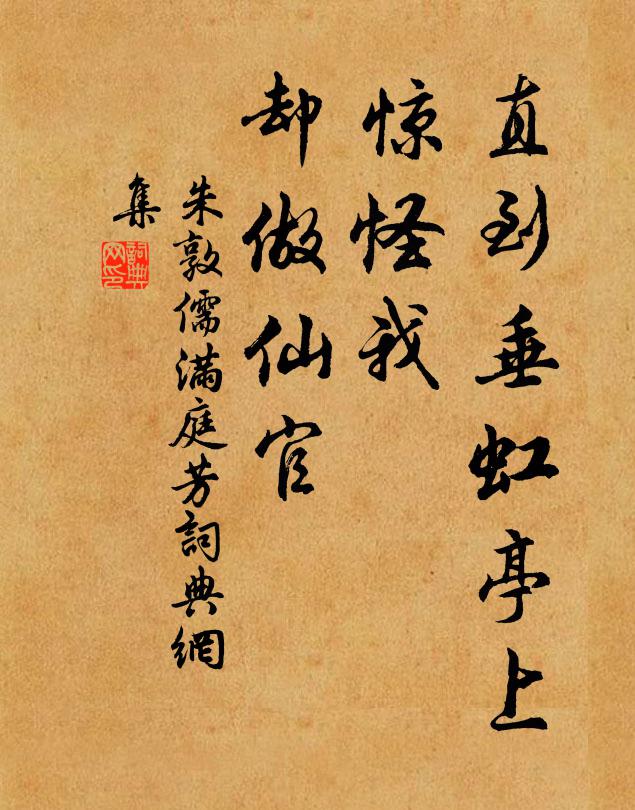 直到垂虹亭上
惊怪我
却做仙官
朱敦儒满庭芳詞典網
集
詞典网印